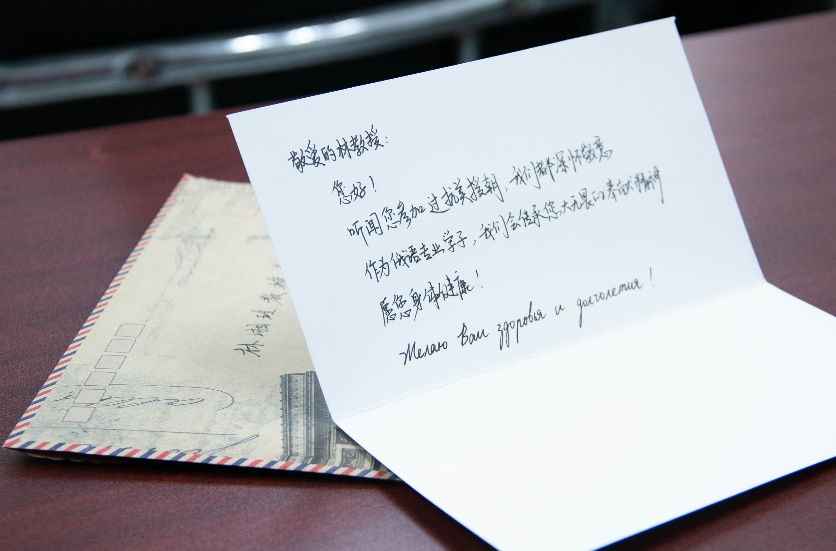 敬爱的林教授：
您好！
听闻您参加过抗美援朝，我们都深怀敬意
作为俄语专业学子，我们会传承您大无畏的奉献精神
愿您身体健康！
Желаю Вам здоровья и долголетия!
林